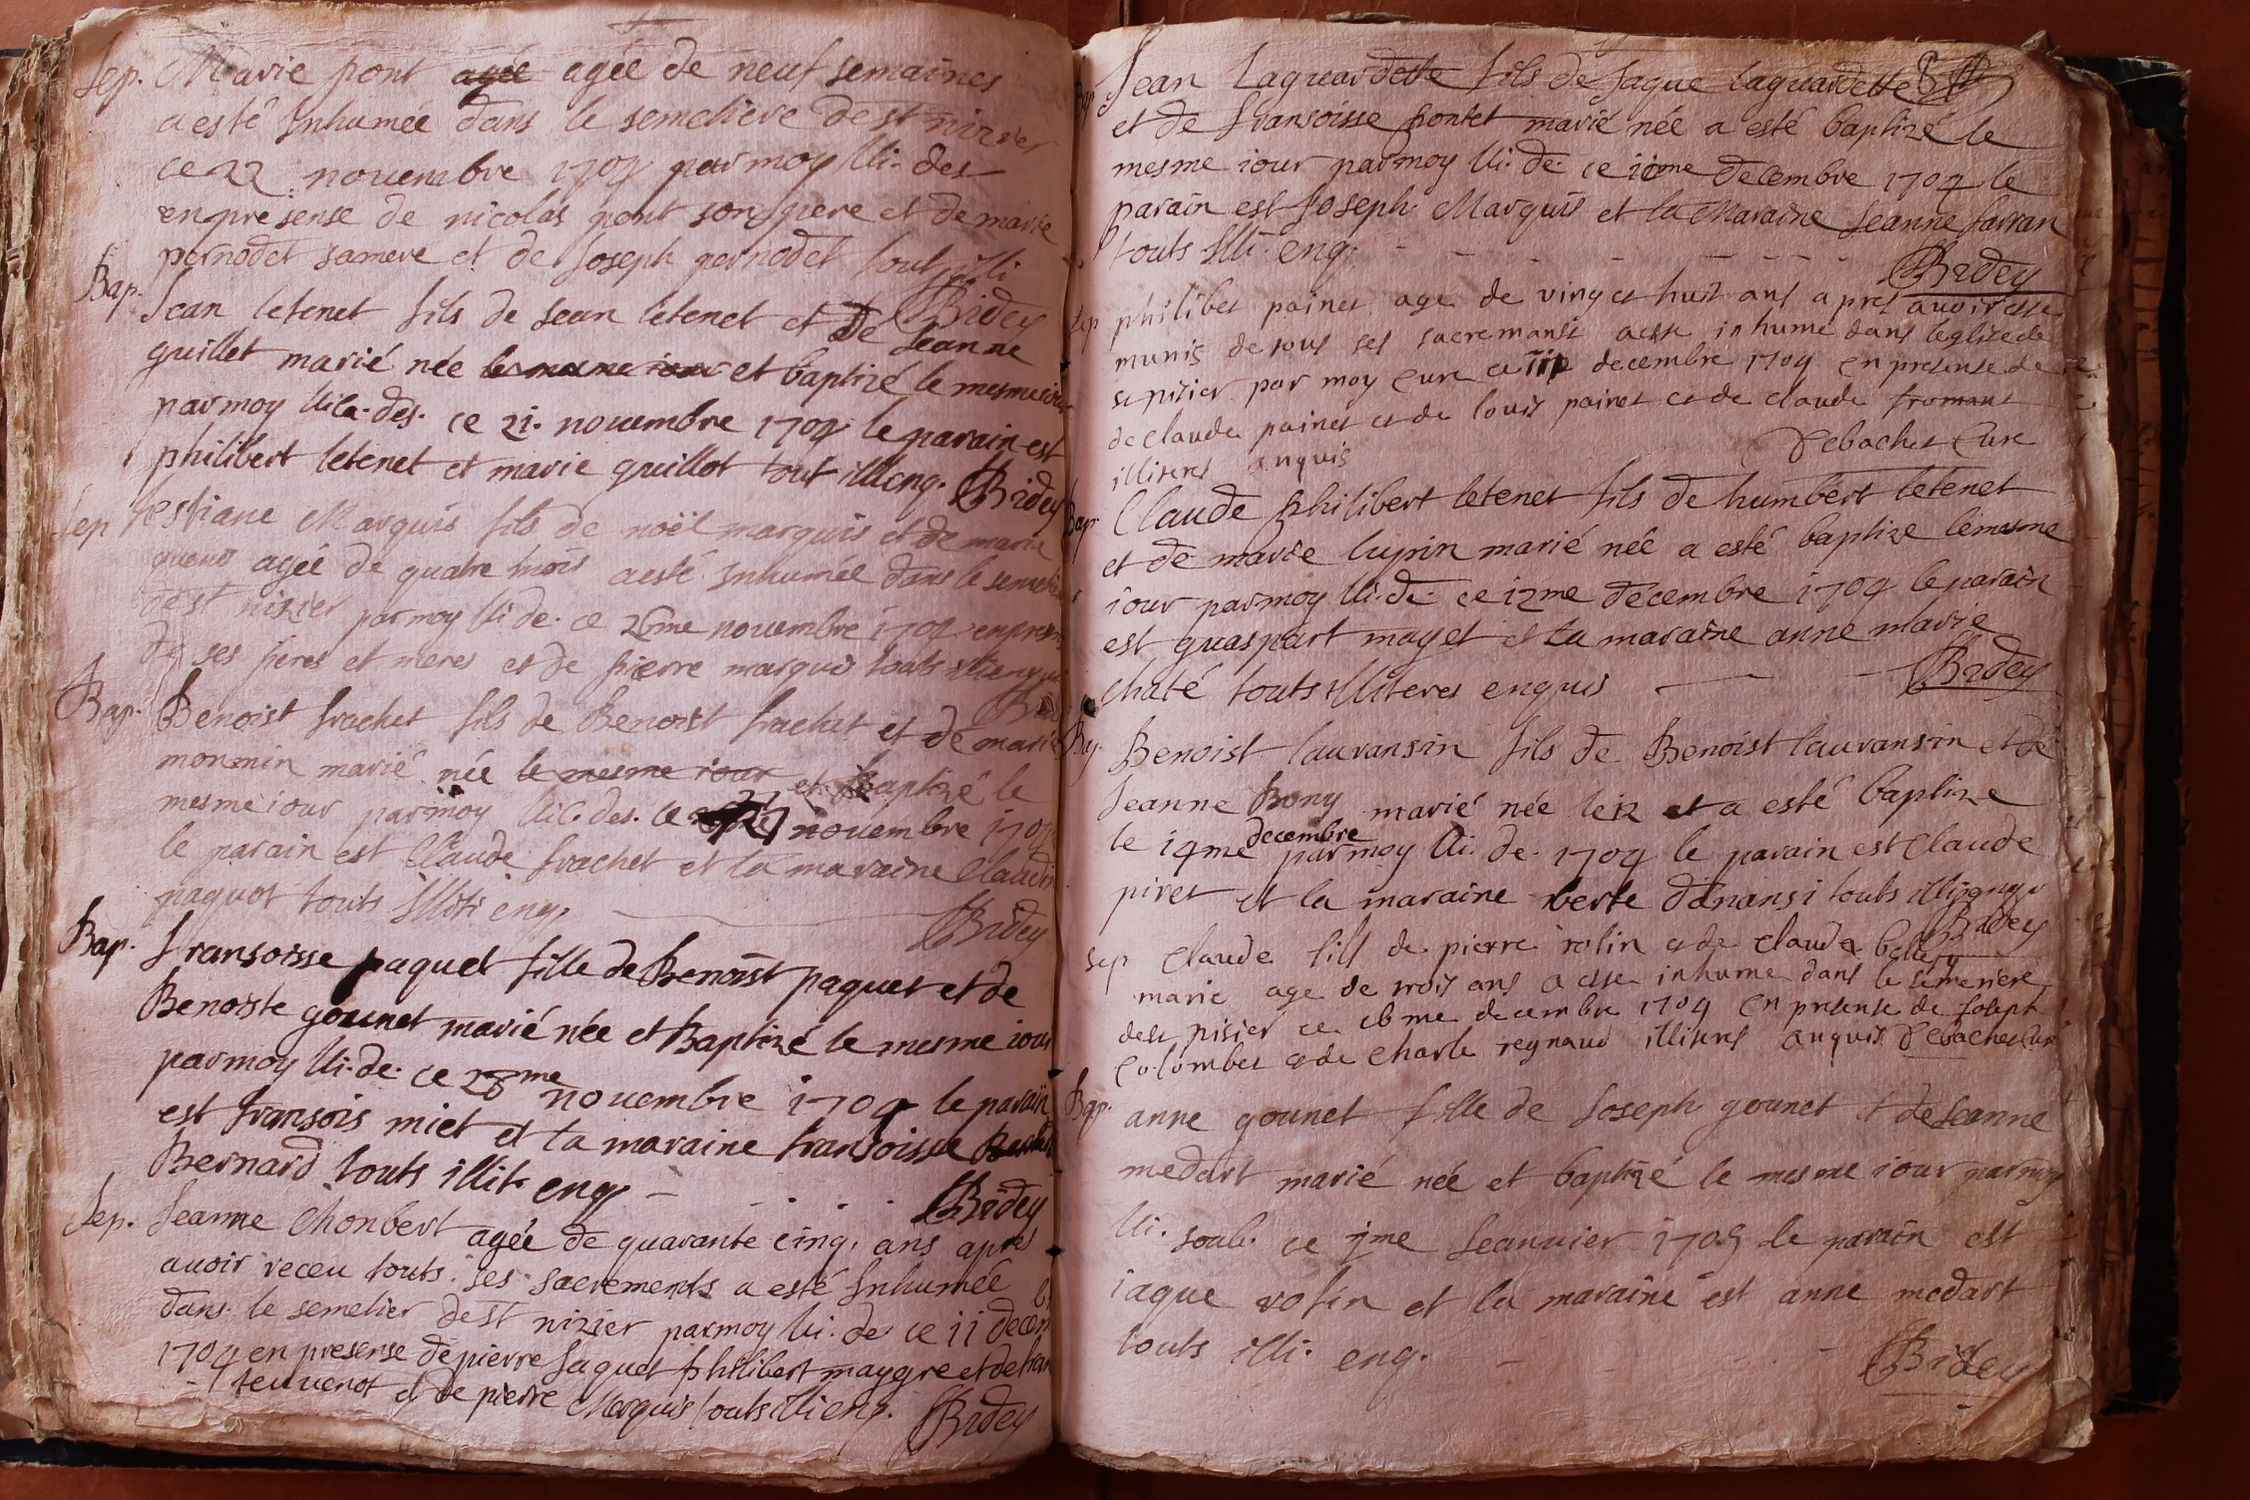 Sep. Marie pont agée agée de neuf semaines
a esté Inhumée dans le semetiere de st nizier
ce 22 nouembre 1704 par moy Vi. des
en presense de nicolas pont son pere et de marie
pernodet samere et de Joseph pernodet tout illi
Bridey
Bap. Jean letenet fils de Jean letenet et De Jeanne
guillet marié née le mesme iour et baptizé le mesme iour
parmoy Vica. des. ce 21. nouembre 1704 le parain est
philibert letenet et marie guillot tout illi enq. Bridey
Sep estiane Marquis fils de noël marquis et de marie
agée de quatre mois a esté Inhumée dans le semetie
de st nizier parmoy Vi de. ce 26me nouembre 1704 en presense
de ses peres et meres et de pierre marquis touts illi enquis
Bap. Benoist frachet fils de Benoist frachet et de marie
monmin marié née le mesme iour et Baptizé le
mesme iour parmoy Vic. des. ce 27 nouembre 1704
le parain est Claude frachet et la maraine Claudine
paquot touts Illiti enq.
Bridey
Bap. fransoisse paquet fille de Benoist paquet et de
Benoiste gounet marié née et Baptizé le mesme iour
parmoy Vi. de. ce 28me nouembre 1704 le parain
est fransois miet et la maraine fransoisse
Bernard touts illit. enq
Bridey
Sep. Jeanne Chonbert agée de quarante cinq. ans apres
auoir receu touts ses sacrements a esté Inhumée
dans le semetier de st nizier parmoy Vi. de ce 11 decem
1704 en presense de pierre Jaquet philibert maygre et de fran
teuuenot et de pierre Marquis touts illi enq. Bridey
Bap. Jean Laguardette fils de Jaque laguardette
et de fransoisse pontet marié née a esté baptizé le
mesme iour parmoy Vi. de. ce 10me decembre 1704 le
parain est Joseph Marquis et la Maraine Jeanne farran
touts Illi. enq.
Bridey
Sep philibet painet age de vingt et huit ans apres auoir este
munis de tous ses sacremants a este inhume dans leglise de
st nisier par moy Cure ce decembre 1704 en presense de
de claude painet et de louis painet et de claude fromant
illiteres anquis Debachet Cure
Bap. Claude philibert letenet fils de humbert letenet
et de marie lupin marié née a esté baptize le mesme
iour parmoy Vi. de. ce 12me decembre 1704 le parain
est guaspart mayet et la maraine anne marie
chaté touts Illiteres enquis
Bridey
Bap. Benoist lauransin fils de Benoist lauransin et de
Jeanne Bony marié née le 12 et a esté baptize
le 14me decembre parmoy Vi. de. 1704 le parain est Claude
piret et la maraine berte danansi touts illi enqu
Bridey
Sep Claude fill de pierre rolin et de claude
marie age de trois ans a este inhume dans le semetiere
de st nisier ce 16 me decembre 1704 en presense de Josept
Colombet et de Charle regnaud illiteres anquis Debachet Cure
Bap. anne gounet fille de Joseph gounet et de Jeanne
medart marié née et baptizé le mesme iour parmoy
Vi. soub. ce 1me Jeanuier 1705 le parain est
iaque rolin et la maraine est anne medart
touts illi. enq.
Bridey